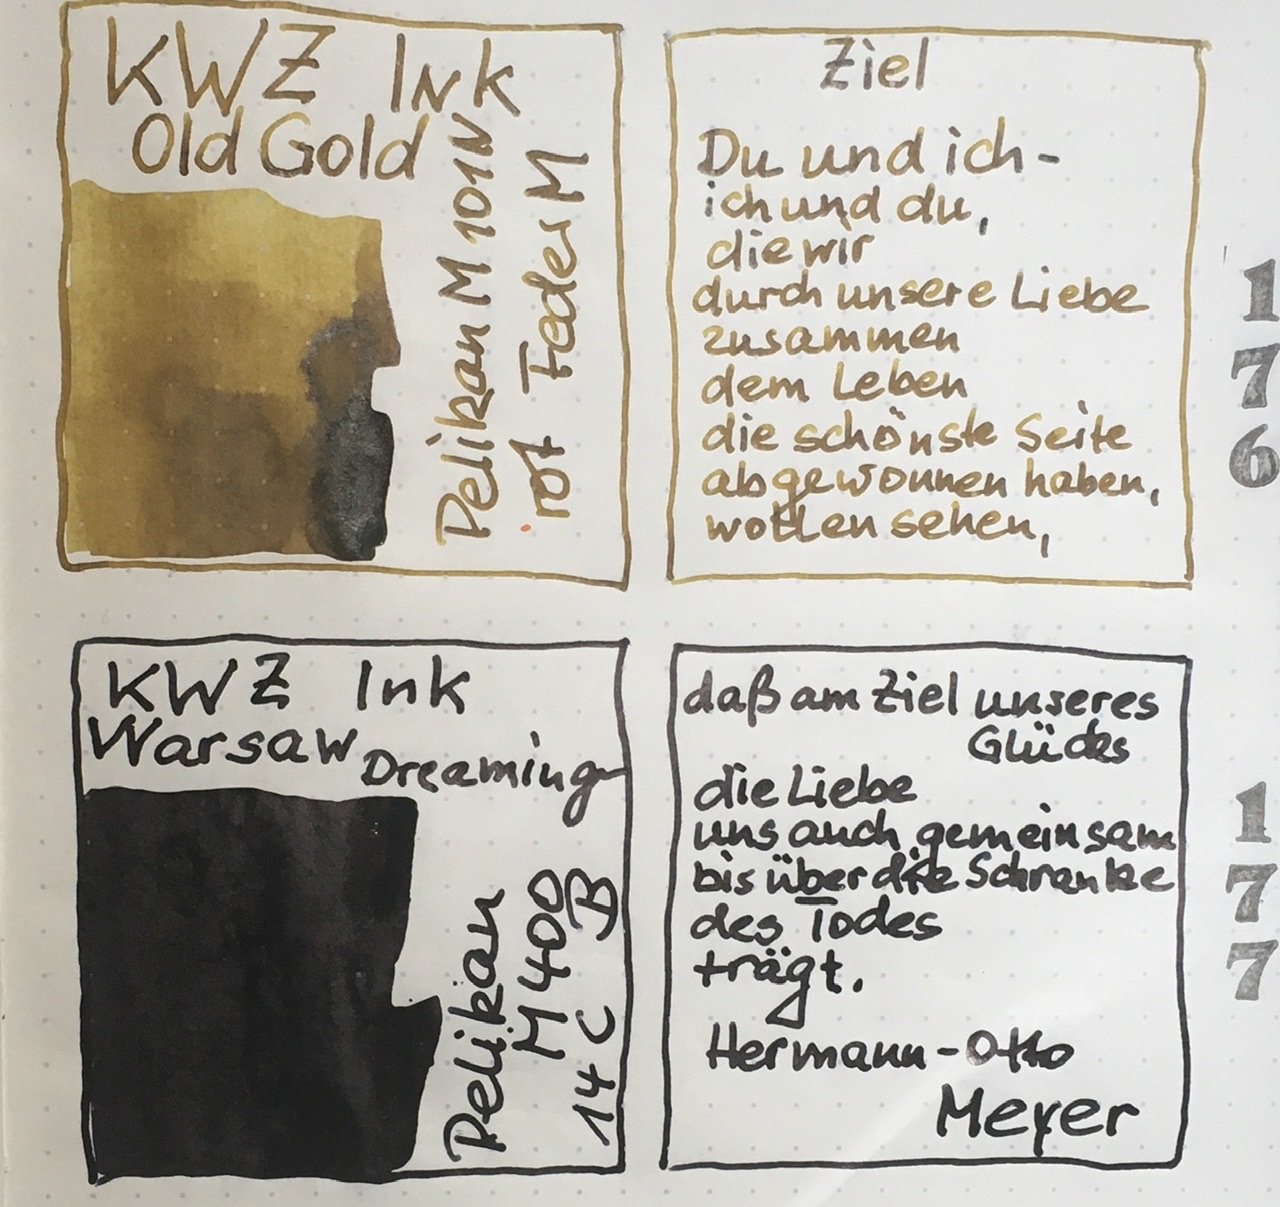 KWZ Ink
Old Gold
Pelikan M101N
rot Feder M
Ziel
Du und ich -
ich und du,
die wir
durch unsere Liebe
zusammen
dem Leben
die schönste Seite
abgewonnen haben,
wollen sehen,
176
KWZ Ink
Warsaw Dreaming
Pelikan
M400
14 C B
daß am Ziel unseres
Glücks
die Liebe
uns auch gemeinsam
bis über die Schranke
des Todes
trägt.
Hermann-Otto
Meyer
177